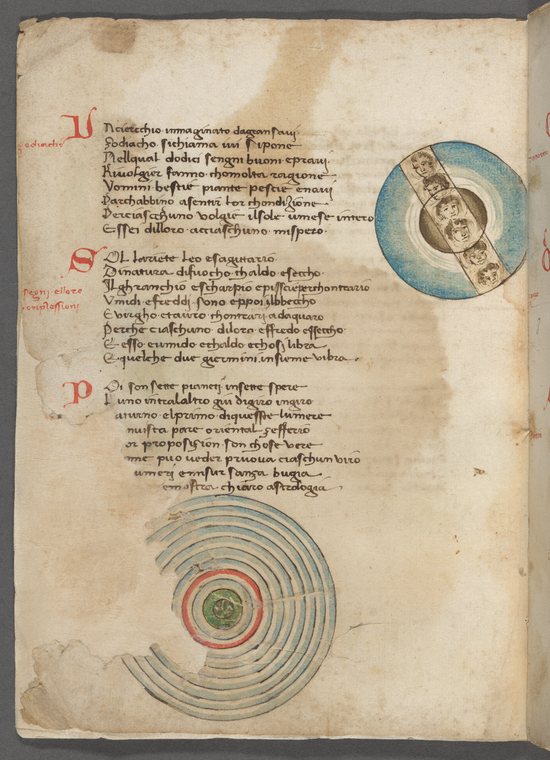 Zodiacho
U Ncierchio inmaginato daglansavi
Zodiacho sichiama vui sipone
Nellqual dodici sengni buoni epravi
Rivolgier fanno chomolta ragione
Vomini bestie piante pescie enavi
Parchabbino asentir lor chondizione
Perciaschuno volgie ilsole umese intero
Essei diloro acciaschuno mispero
Segni ellore
S OL lariete leo esagittario
Dinatura difuocho chaldo eseccho
Ilghranchio escharpio episscie perchontrario
Umidi efreddi sono eppoi ilbbeccho
E virgho etauro chontrari adaquaro
Perche ciaschuno diloro effredo esseccho
E esso eumido echaldo echosi libra
E quelche due giermini insieme vibra
P Oi son sette pianeti insette spere
Luno intralaltro gui digiro ingiro
aturno elprimo diquesste lumere
pare oriental zefferio
or proposizion son chose vere
me puo veder pruova ciaschun viro
umeri ennsur sanza bugia
mostra chiaro astrologia